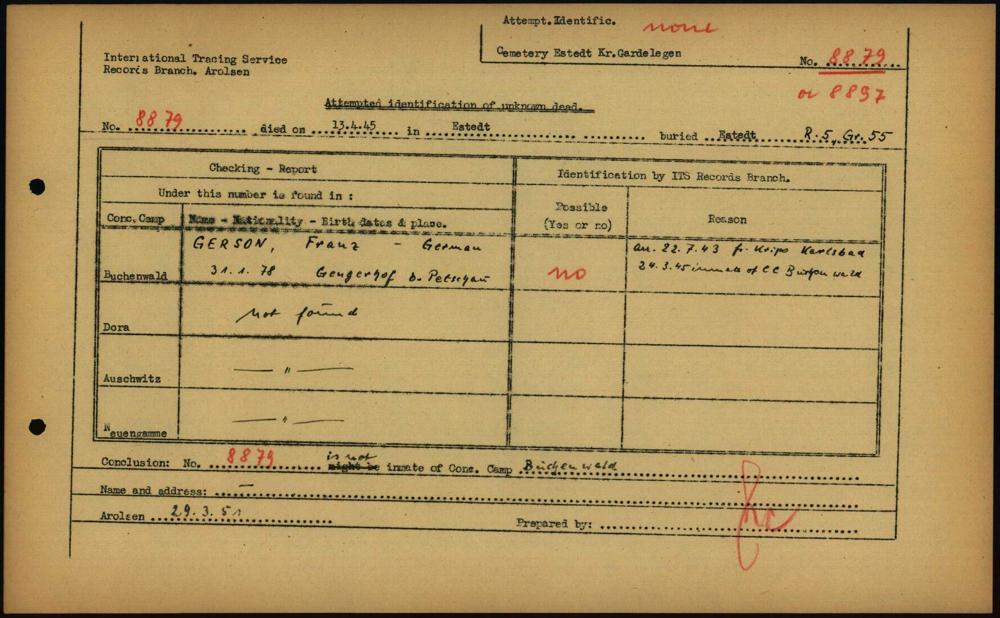 Attempt. Identific. none
Cemetery Estedt Kr. Gardelegen
No. 8879
or 8897
International Tracing Service
Records Branch. Arolsen
Attempted identification of unknown dead.
No. 8879 died on 13.4.45 in Estedt buried Estedt R. 5, Gr. 55
Checking - Report
Identification by ITS Records Branch.
Under this number is found in :
Possible
(Yes or no)
Reason
Conc. Camp
Name - Nationality - Birth dates & place.
Buchenwald
GERSON, Franz - German
31.1.78 Gengerhof b. Petschau
no
arr. 22.7.43 fr. Kripo Karlsbad
24.3.45 inmate of CC Buchenwald
Dora
not found
Auschwitz
— " —
Neuengamme
— " —
Conclusion: No. 8879 is not might be inmate of Conc. Camp Buchenwald
Name and address: —
Arolsen 29.3.51
Prepared by: